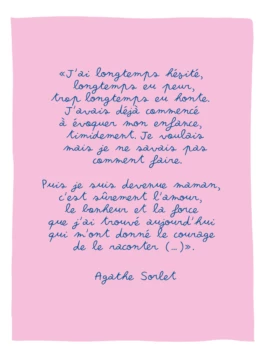 «J'ai longtemps hésité,
longtemps eu peur,
trop longtemps eu honte.
J'avais déjà commencé
à évoquer mon enfance,
timidement. Je voulais
mais je ne savais pas
comment faire.
Puis je suis devenue maman,
c'est sûrement l'amour,
le bonheur et la force
que j'ai trouvé aujourd'hui
qui m'ont donné le courage
de le raconter (...)».
Agathe Sorlet